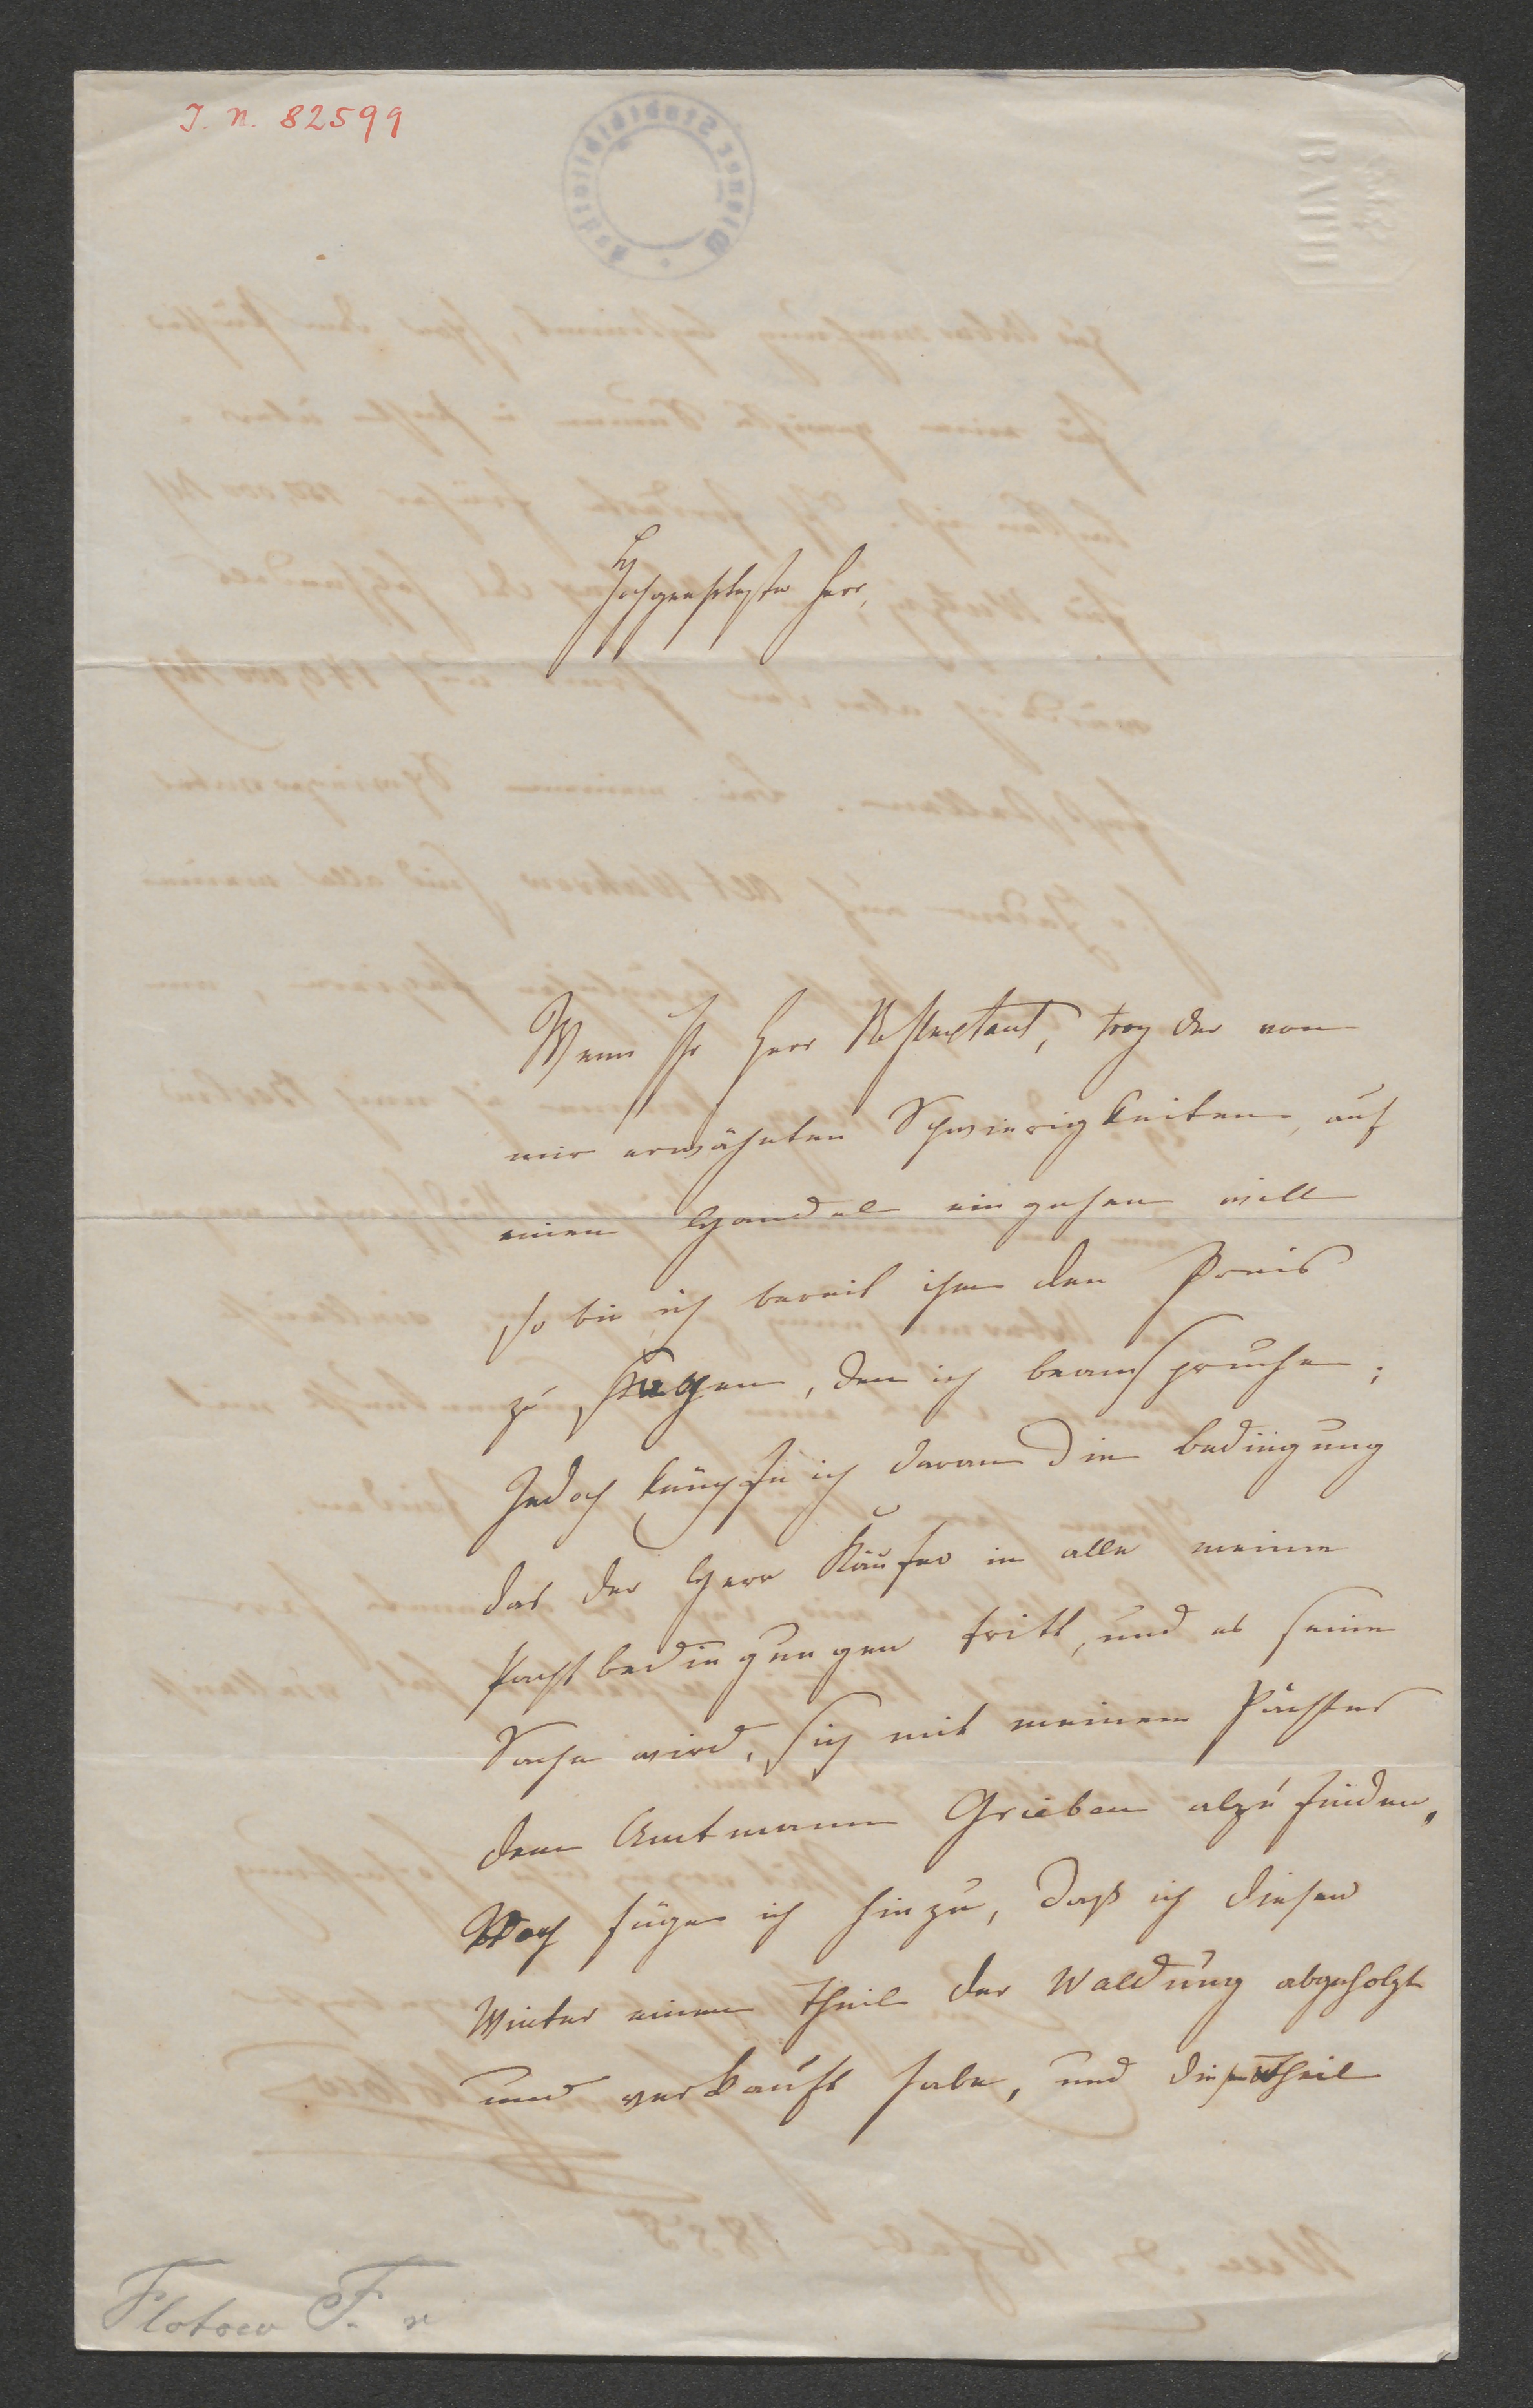 J. N. 82599
Hochgeehrtester Herr,
Wenn Ihr Herr Reflectant, trotz der von
mir erwähnten Schwierigkeiten, auf
einen Handel eingehen will
so bin ich bereit ihm den Preis
zu sagen, den ich beanspruche;
Jedoch knüpfe ich daran die Bedingung
das der Herr Käufer in alle meine
Pachtbedingungen tritt, und es seine
Sache wird, sich mit meinem Pächter
dem Amtmann Grieben abzufinden.
Noch füge ich hinzu, daß ich diesen
Winter einen Theil der Waldung abgeholzt
und verkauft habe, und diesen Theil
Flotow F. v